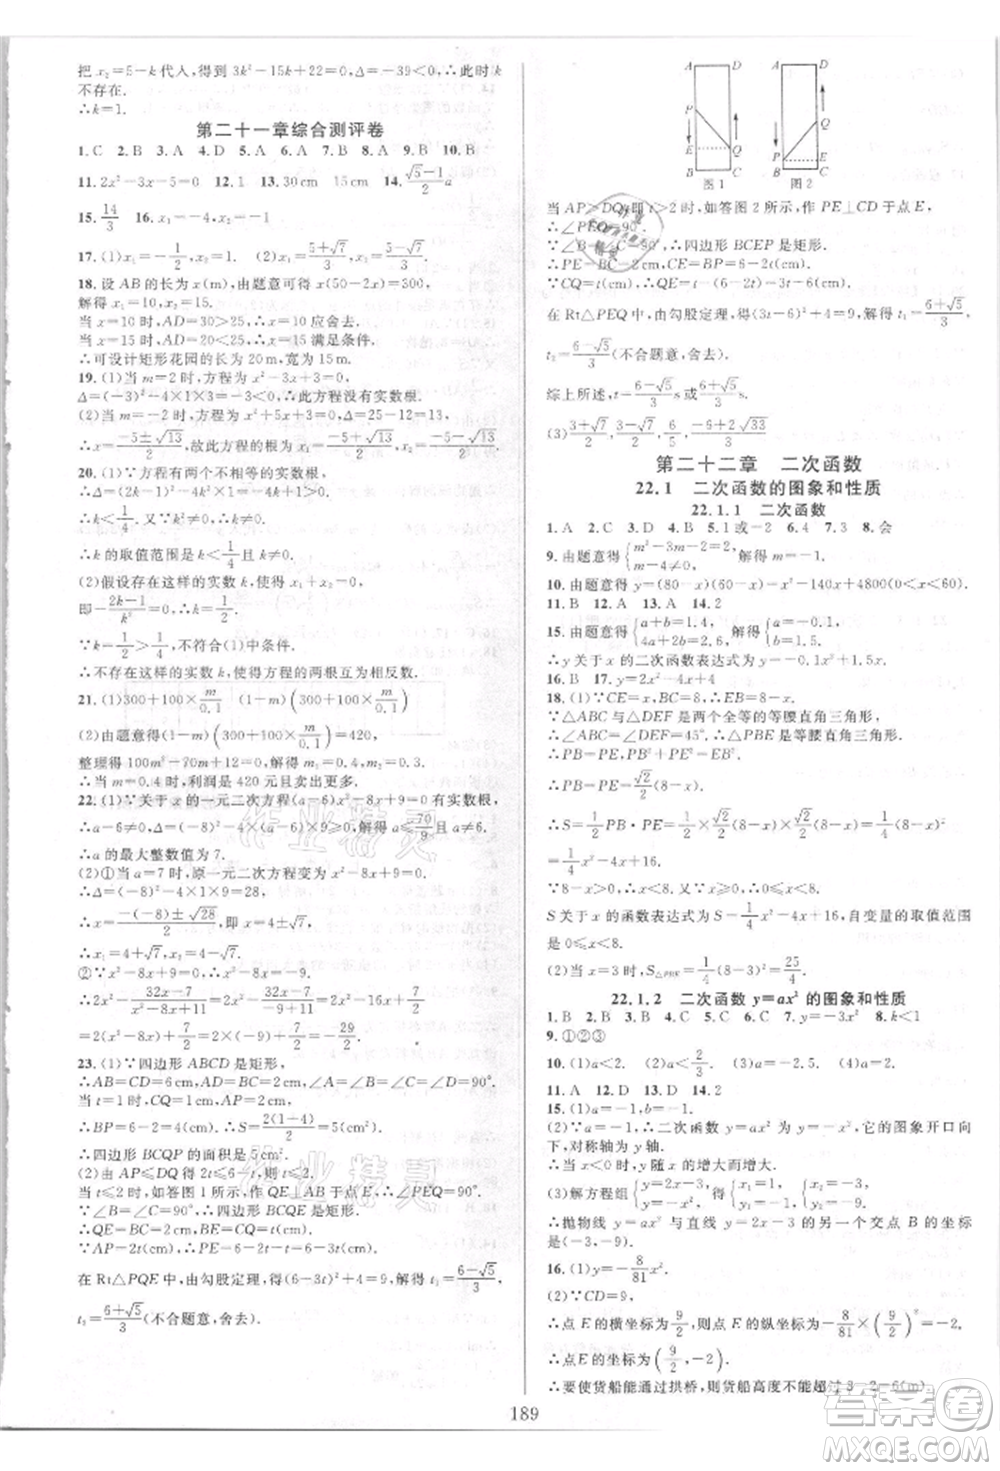 把 x₂=5-k 代入，得到 3k²-15k+22=0，Δ=-39<0，∴此时 k
不存在.
∴k=1.
第二十一章综合测评卷
1. C 2. B 3. A 4. D 5. A 6. A 7. A 8. A 9. B 10. B
11. 2x²-3x-5=0 12. 1 13. 30cm 15cm 14. (√5-1)/2 a
15. 14/3 16. x₁=-4，x₂=-1
17. (1)x₁=-1，x₂=1 (2)x₁=(5+√7)/3，x₂=(5-√7)/3
18. 设 AB 的长为 x(m)，由题意可得 x(50-2x)=300，
解得 x₁=10，x₂=15.
当 x=10 时，AD=30>25，∴x=10 应舍去.
当 x=15 时，AD=20<25，∴x=15 满足条件.
∴可设计矩形花园的长为 20m，宽为 15m.
19. (1)当 m=2 时，方程为 x²-3x+3=0，
Δ=(-3)²-4×1×3=-3<0，∴此方程没有实数根.
(2)当 m=-2 时，方程为 x²+5x+3=0，Δ=25-12=13，
∴x=(-5±√13)/2，故此方程的根为 x₁=(-5+√13)/2，x₂=(-5-√13)/2
20. (1)∵方程有两个不相等的实数根，
∴Δ=(2k-1)²-4k²×1=-4k+1>0，
∴k<1/4. 又∵k²≠0，∴k≠0.
∴k 的取值范围是 k<1/4 且 k≠0.
(2)假设存在这样的实数 k，则 x₁+x₂=0，
即-(2k-1)/k²=0，∴k=1/2.
∵k=1/2>1/4，∴不符合(1)中条件.
∴不存在这样的实数 k，使得方程的两根互为相反数.
21. (1)300+100×m/0.1 (1-m)(300+100×m/0.1)
(2)由题意，可得(1-m)(300+100×m/0.1)=420，
整理得 100m²-70m+12=0，∴m₁=0.4，m₂=0.3.
∴当 m=0.4 时，利润是 420 元且卖出更多.
22. (1)∵关于 x 的一元二次方程(a-6)x²-8x+9=0 有实数根，
∴a-6≠0，Δ=(-8)²-4×(a-6)×9≥0，解得 a≤70/9 且 a≠6.
∴a 的最大整数值为 7.
(2)①当 a=7 时，原一元二次方程变为 x²-8x+9=0，
∴Δ=(-8)²-4×1×9=28，
∴x=(-(-8)±√28)/2，即 x=4±√7，
∴x₁=4+√7，x₂=4-√7.
②∵x²-8x+9=0，∴x²-8x=-9.
∴2x²-(32x-7)/(x²-8x+11)=2x²-(32x-7)/(-9+11)=2x²-16x+7/2
=2(x²-8x)+7/2=2×(-9)+7/2=-29/2.
23. (1)∵四边形 ABCD 是矩形，
∴AB=CD=6(cm)，AD=BC=2(cm)，∠A=∠B=∠C=∠D=90°.
当 t=1 时，CQ=1(cm)，AP=2(cm)，
∴BP=6-2=4(cm)，∴S=2(1+4)/2=5(cm²).
∴四边形 BCQP 的面积是 5cm².
(2)由 AP≤DQ 得 2t≤6-t，即 t≤2.
当 t≤2 时，如答图 1 所示，作 QE⊥AB 于点 E，∴∠PEQ=90°.
∵∠B=∠C=90°，∴四边形 BCQE 是矩形，
∴QE=BC=2(cm)，BE=CQ=t(cm).
∵AP=2t(cm)，∴PE=6-2t-t=6-3t(cm).
在 Rt△PQE 中，由勾股定理，得(6-3t)²+4=9，解得 t₁=(6-√5)/3，
t₂=(6+√5)/3(不合题意，舍去).
A D A D
P
E Q P Q E
B C B C
图 1 图 2
当 AP>DQ，即 t>2 时，如答图 2 所示，作 PE⊥CD 于点 E，
∴∠PEQ=90°.
∵∠B=∠C=90°，∴四边形 BCEP 是矩形，
∴PE=BC=2(cm)，BP=CE=6-2t(cm).
∵CQ=t(cm)，∴QE=t-(6-2t)=3t-6(cm).
在 Rt△PEQ 中，由勾股定理，得(3t-6)²+4=9，解得 t₁=(6+√5)/3，
t₂=(6-√5)/3(不合题意，舍去).
综上所述，t=(6-√5)/3 s 或 (6+√5)/3 s.
(3)(3+√7)/2，(3-√7)/2，6/5，(-6+2√33)/3
第二十二章 二次函数
22.1 二次函数的图象和性质
22.1.1 二次函数
1. A 2. C 3. D 4. B 5. 1 或-2 6. 4 7. 3 8. 会
9. 由题意得{m²-3m-2=2，m-4≠0，解得 m=-1.
10. 由题意得 y=(80-x)(60-x)=x²-140x+4800(0<x<60).
11. B 12. A 13. A 14. 2
15. 由题意得{a+b=1.4，4a+2b=2.6，解得{a=-0.1，b=1.5.
∴y 关于 x 的二次函数表达式为 y=-0.1x²+1.5x.
16. B 17. y=2x²-4x+4
18. (1)∵CE=x，BC=8，∴EB=8-x.
∵△ABC 与△DEF 是两个全等的等腰直角三角形，
∴∠ABC=∠DEF=45°，∴△PBE 是等腰直角三角形，
∴PB=PE，PB²+PE²=EB²，
∴PB=PE=√2/2 EB=√2/2(8-x)，
∴S=1/2 PB·PE=1/2×√2/2(8-x)×√2/2(8-x)=1/4(8-x)²
=1/4x²-4x+16.
∵8-x>0，∴x<8. 又∵x≥0，∴0≤x<8.
S 关于 x 的函数表达式为 S=1/4x²-4x+16，自变量的取值范围
是 0≤x<8.
(2)当 x=3 时，S△PBE=1/4(8-3)²=25/4.
22.1.2 二次函数 y=ax² 的图象和性质
1. B 2. B 3. D 4. B 5. C 6. C 7. y=-3x² 8. k>1
9. ①②③
10. (1)a<2 (2)a<2/3 (3)a>-1 (4)a<1
11. A 12. D 13. D 14. 2
15. (1)a=-1，b=-1
(2)∵y=ax²，a=-1，∴二次函数 y=-x²，它的图象开口向
下，对称轴为 y 轴.
∴当 x<0 时，y 随 x 的增大而增大.
(3)解方程组{y=-x²，y=2x-3 得{x₁=1，y₁=-1，{x₂=-3，y₂=-9，
∴抛物线 y=ax² 与直线 y=2x-3 的另一个交点 B 的坐标
是(-3，-9).
16. (1)y=-8/81x²
(2)∵CD=9，
∴点 E 的横坐标为 9/2，则点 E 的纵坐标为-8/81×(9/2)²=-2.
∴点 E 的坐标为(9/2，-2).
∴要使货船能通过拱桥，则货船高度不能超过 8-2=6(m).
189
作业精灵
作业精灵
答案圈
MXQE.COM